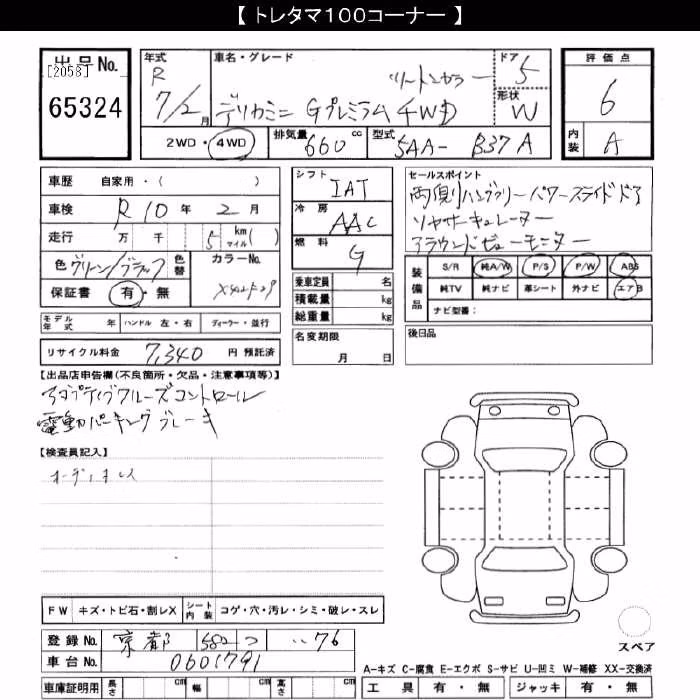 【 トレタマ100コーナー 】
出品No. [2058]
65324
年式 R 7/2月
車名・グレード ツートンカラー
デリカミニ Gプレミアム 4WD
ドア 5
形状 W
2WD・4WD
排気量 660 cc
型式 5AA- B37A
評価点 6
内装 A
車歴 自家用・( )
車検 R10年 2月
走行 万 千 5 km マイル ( )
色 グリーン/ブラック 色替
カラーNo.
保証書 有・無
モデル年式 年 ハンドル 左・右 ディーラー・並行
リサイクル料金 7,340 円 預託済
シフト IAT
冷房 AAC
燃料 G
乗車定員 名
積載量 kg
総重量 kg
名変期限 月 日
セールスポイント
両側ハンズフリーパワースライドドア
リヤサーキュレーター
アラウンドビューモニター
装備品 S/R 純A/W P/S P/W ABS
純TV 純ナビ 革シート 外ナビ エアB
ナビ型番:
後日品
【出品店申告欄(不良箇所・欠品・注意事項等)】
アダプティブクルーズコントロール
電動パーキングブレーキ
【検査員記入】
オーディオレス
FW キズ・トビ石・割レX シート内装 コゲ・穴・汚レ・シミ・破レ・スレ
登録No. 京都 582 つ ・・76
車台No. 0601791
車庫証明用 長さ cm 幅 cm 高さ cm
スペア
A-キズ C-腐食 E-エクボ S-サビ U-凹ミ W-補修 XX-交換済
工具 有・無 ジャッキ 有・無